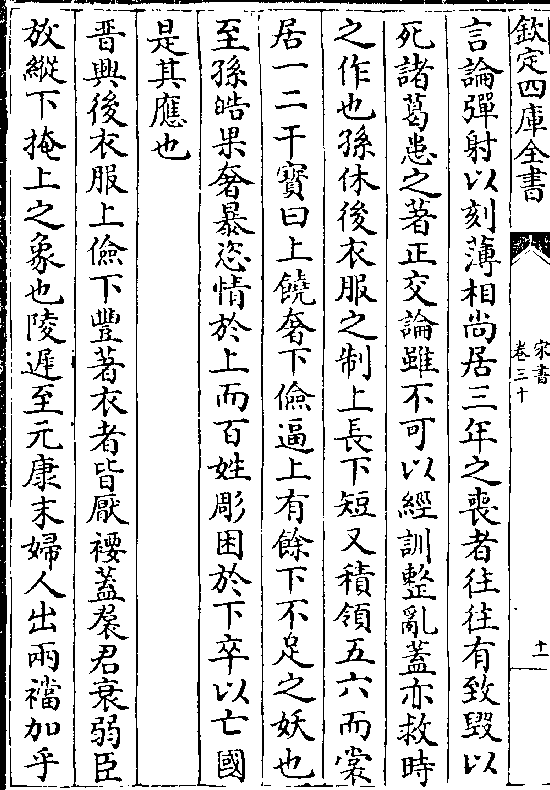 欽定四庫全書
宋書
卷三十
十一
言論彈射以刻薄相尚居三年之喪者往往有致毀以
死諸葛患之著正交論雖不可以經訓整亂蓋亦救時
之作也孫休後衣服之制上長下短又積領五六而裳
居一二干寳曰上饒奢下儉逼上有餘下不足之妖也
至孫皓果奢暴恣情於上而百姓彫困於下卒以亡國
是其應也
晉興後衣服上儉下豐著衣者皆厭䙅蓋裠君衰弱臣
放縱下掩上之象也陵遲至元康末婦人出兩襠加乎